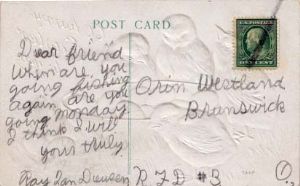 POST CARD
U.S. POSTAGE
ONE CENT
Dear friend
When are, you
going fishing
again are you
going monday.
I think I will
yours truly.
Ray Van Deusen
Orin Westland
Brunswick
R F D #3
O.